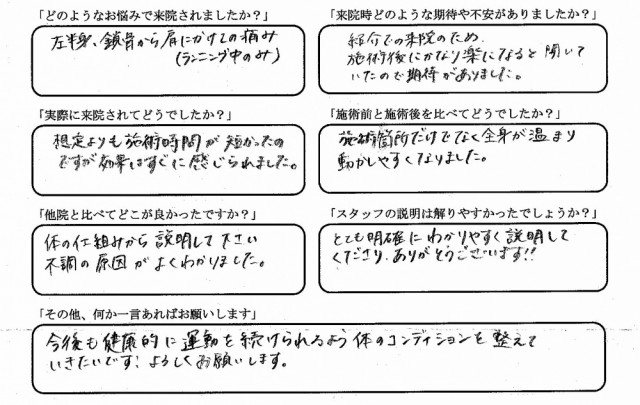 「どのようなお悩みで来院されましたか？」
左半身、鎖骨から肩にかけての痛み
(ランニング中のみ)
「来院時どのような期待や不安がありましたか？」
紹介での来院のため、
施術後にかなり楽になると聞いて
いたので期待がありました。
「実際に来院されてどうでしたか？」
想定よりも施術時間が短かったの
ですが効果はすぐに感じられました。
「施術前と施術後を比べてどうでしたか？」
施術箇所だけでなく全身が温まり
動かしやすくなりました。
「他院と比べてどこが良かったですか？」
体の仕組みから説明して下さい
不調の原因がよくわかりました。
「スタッフの説明は解りやすかったでしょうか？」
とても明確にわかりやすく説明して
くださり、ありがとうございます!!
「その他、何か一言あればお願いします」
今後も健康的に運動を続けられるよう体のコンディションを整えて
いきたいです！よろしくお願いします。